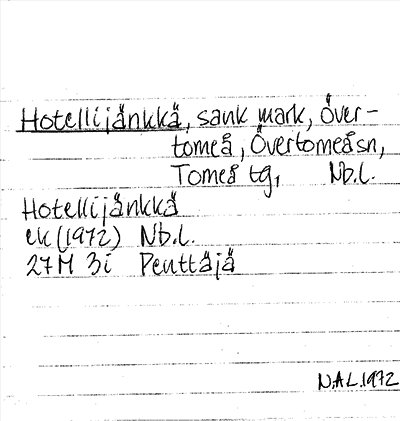 Hotellijänkkä, sank mark, Över-
torneå, Övertorneåsn,
Torneå tg, Nb.l.
Hotellijänkkä
ek (1972) Nb.l.
27M 3i Penttäjä
N.A.L. 1972